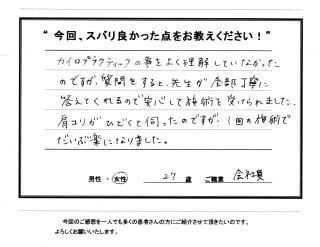 “今回、ズバリ良かった点をお教えください！”
カイロプラクティックの事をよく理解していなかった
のですが、質問をすると、先生が全部丁寧に
答えてくれるので安心して施術を受けられました。
肩コリがひどくて伺ったのですが、1回の施術で
だいぶ楽になりました。
男性・女性 27 歳 ご職業 会社員
今回のご感想を一人でも多くの患者さんの方にご紹介させて頂きたいのです。
よろしくお願いいたします。